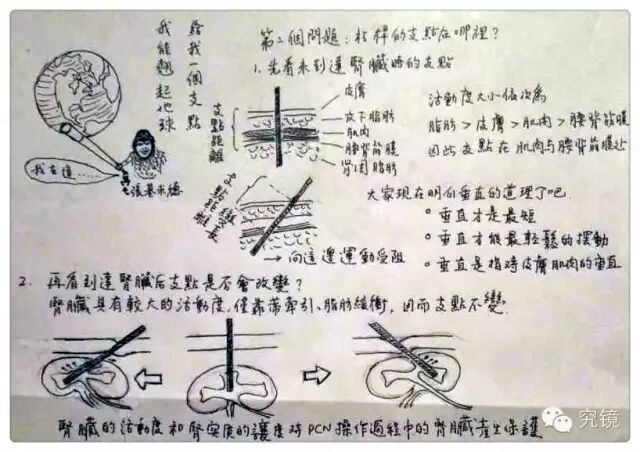 給我一個支點
我能翹起地球
我在這……
張基米德
第二個問題：杠桿的支點在哪裡？
1. 先看未到達腎臟時的支點
支點距離
皮膚
皮下脂肪
肌肉
腰背筋膜
腎周脂肪
活動度大小依次為
脂肪 > 皮膚 > 肌肉 > 腰背筋膜
因此支點在肌肉与腰背筋膜处
支點距離變長
→ 向這邊運動受阻
大家現在明白垂直的道理了吧
• 垂直才是最短
• 垂直才能最輕鬆的摆動
• 垂直是指時皮膚肌肉的垂直
2. 再看到達腎臟后支點是否會改變？
腎臟具有較大的活動度，僅靠蒂牽引、脂肪緩衝，因而支點不變.
腎臟的活動度和腎实质的讓度時PCN操作過程中的腎臟產生保護
究镜